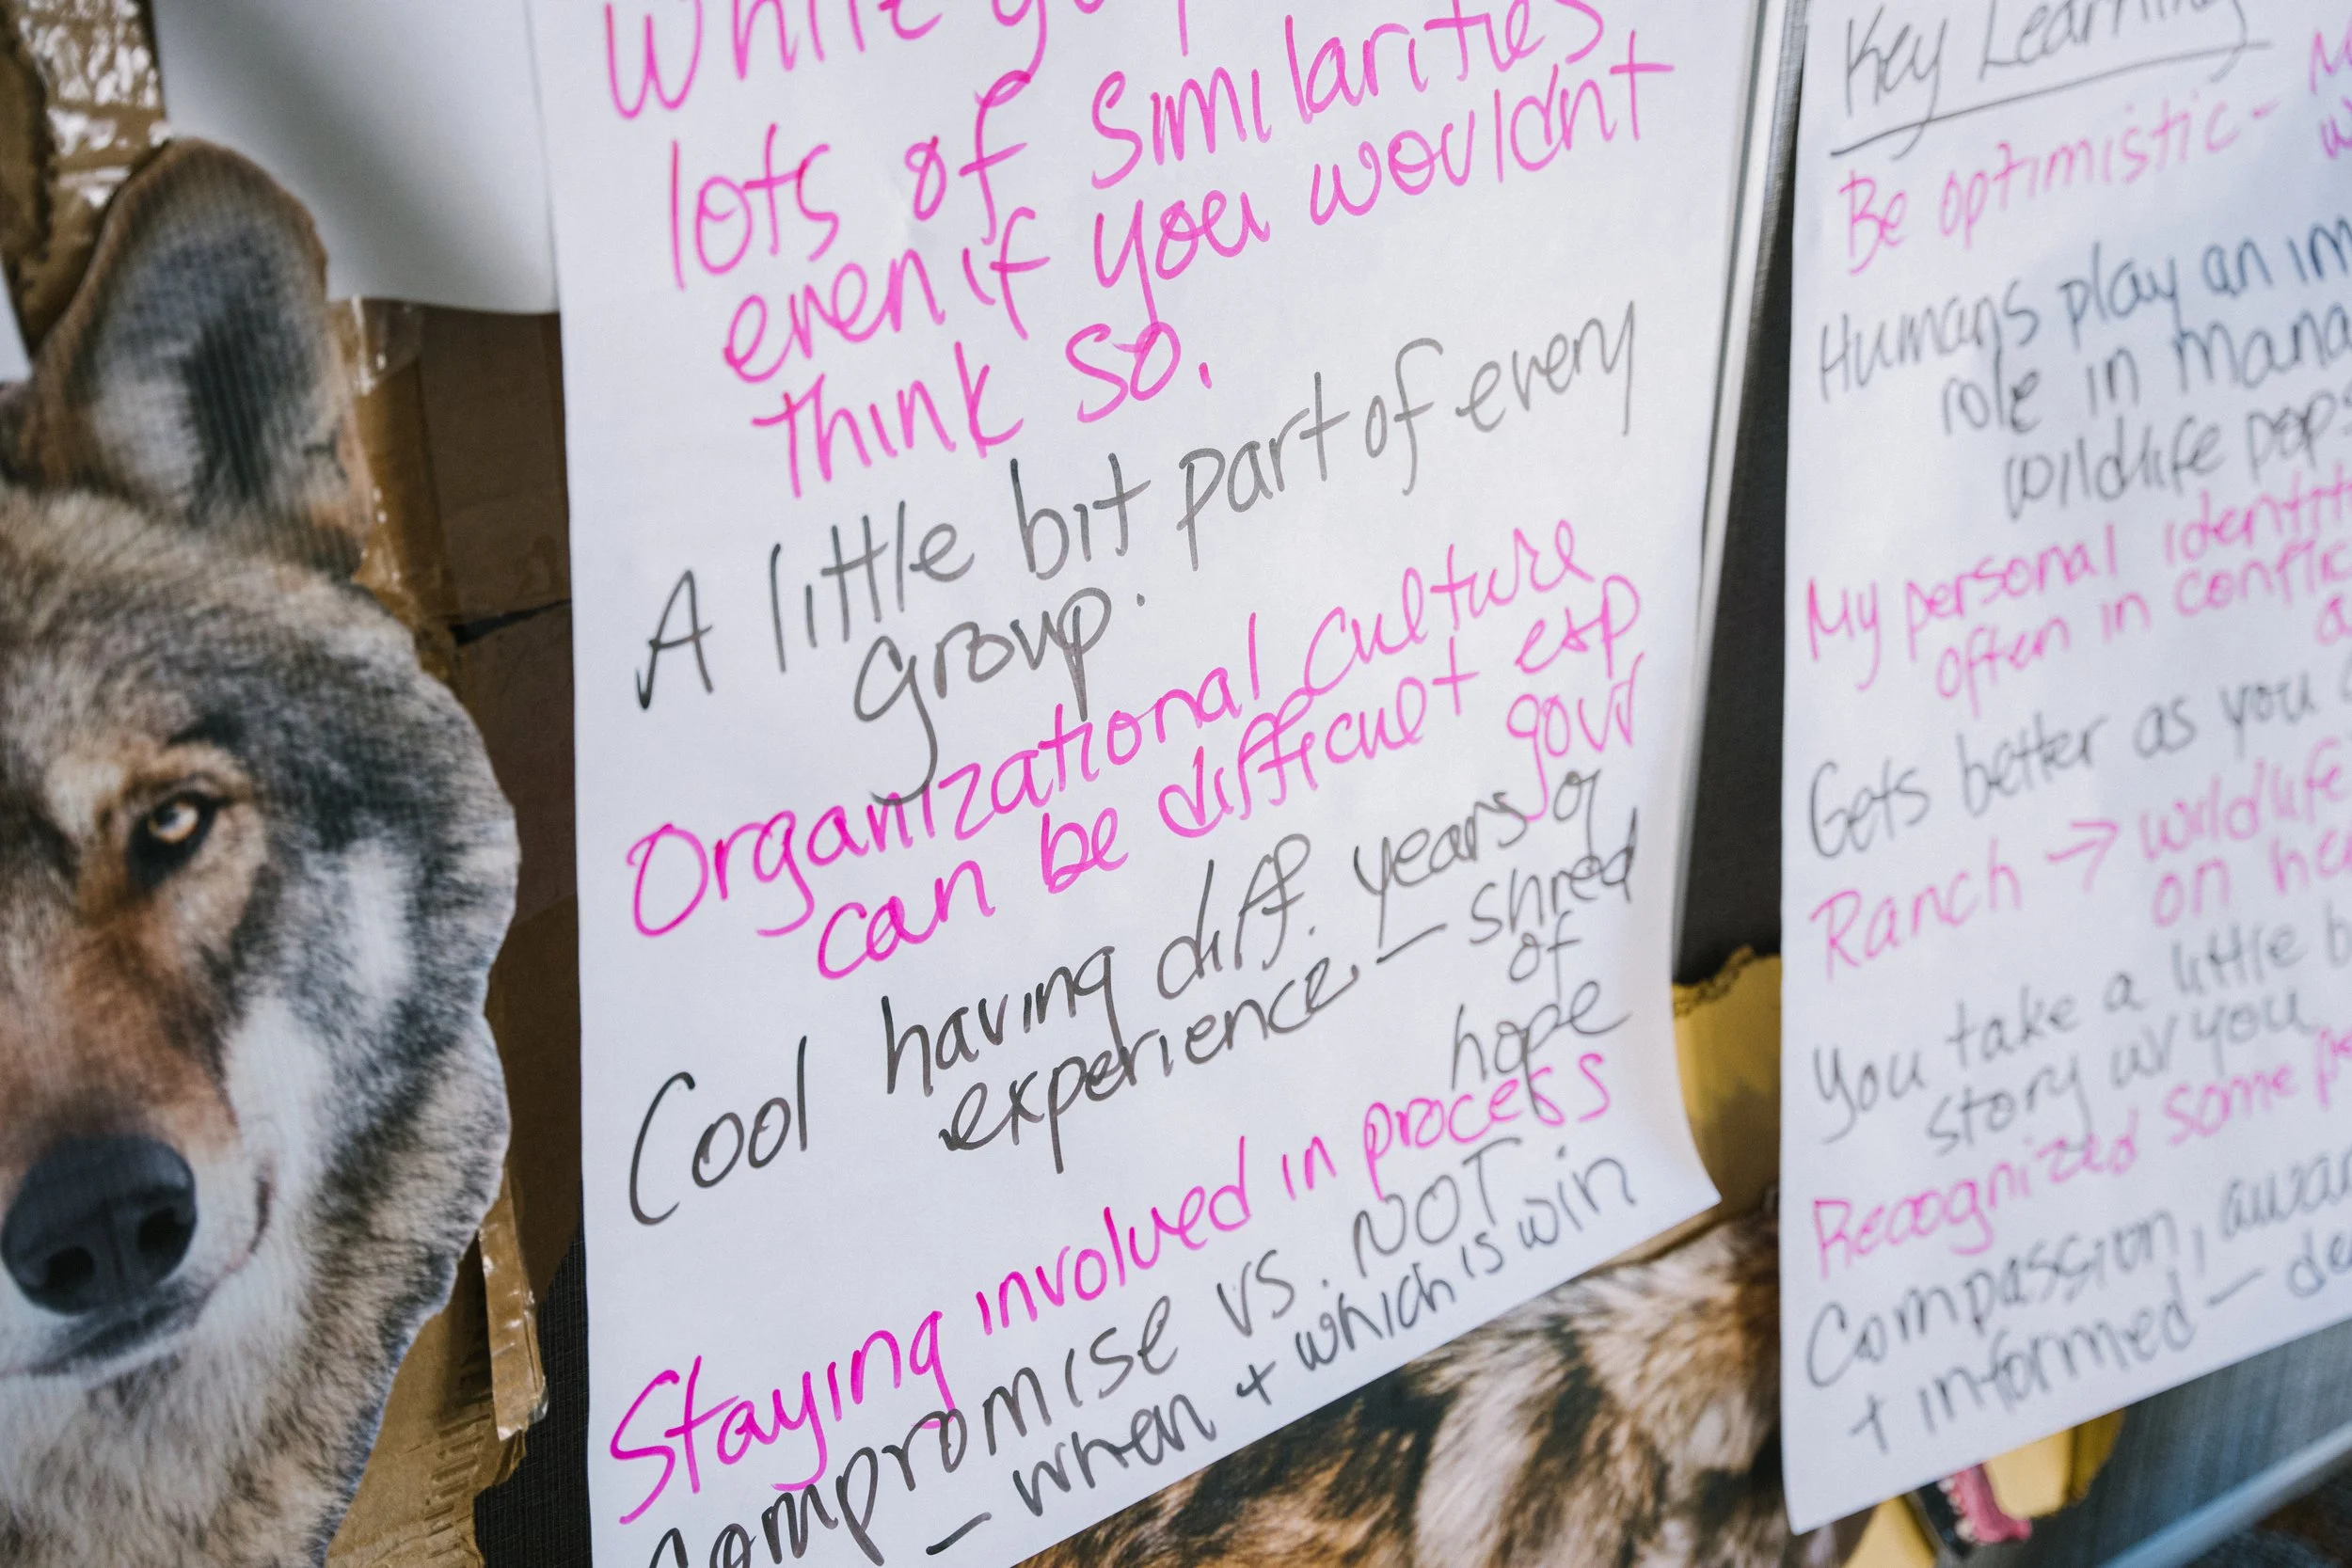 lots of similarities
even if you wouldnt
think so.
A little bit part of every
group.
Organizational culture
can be difficult esp
govt
Cool having diff. years of
experience. — shred
of
hope
Staying involved in process
compromise vs. NOT
— when + which is win
Key Learning
Be optimistic -
Humans play an
role in
wildlife pops
My personal
often in
Gets better as you
Ranch → wildlife
on
You take a little
story w/ you
Recognized some
Compassion,
+ informed —